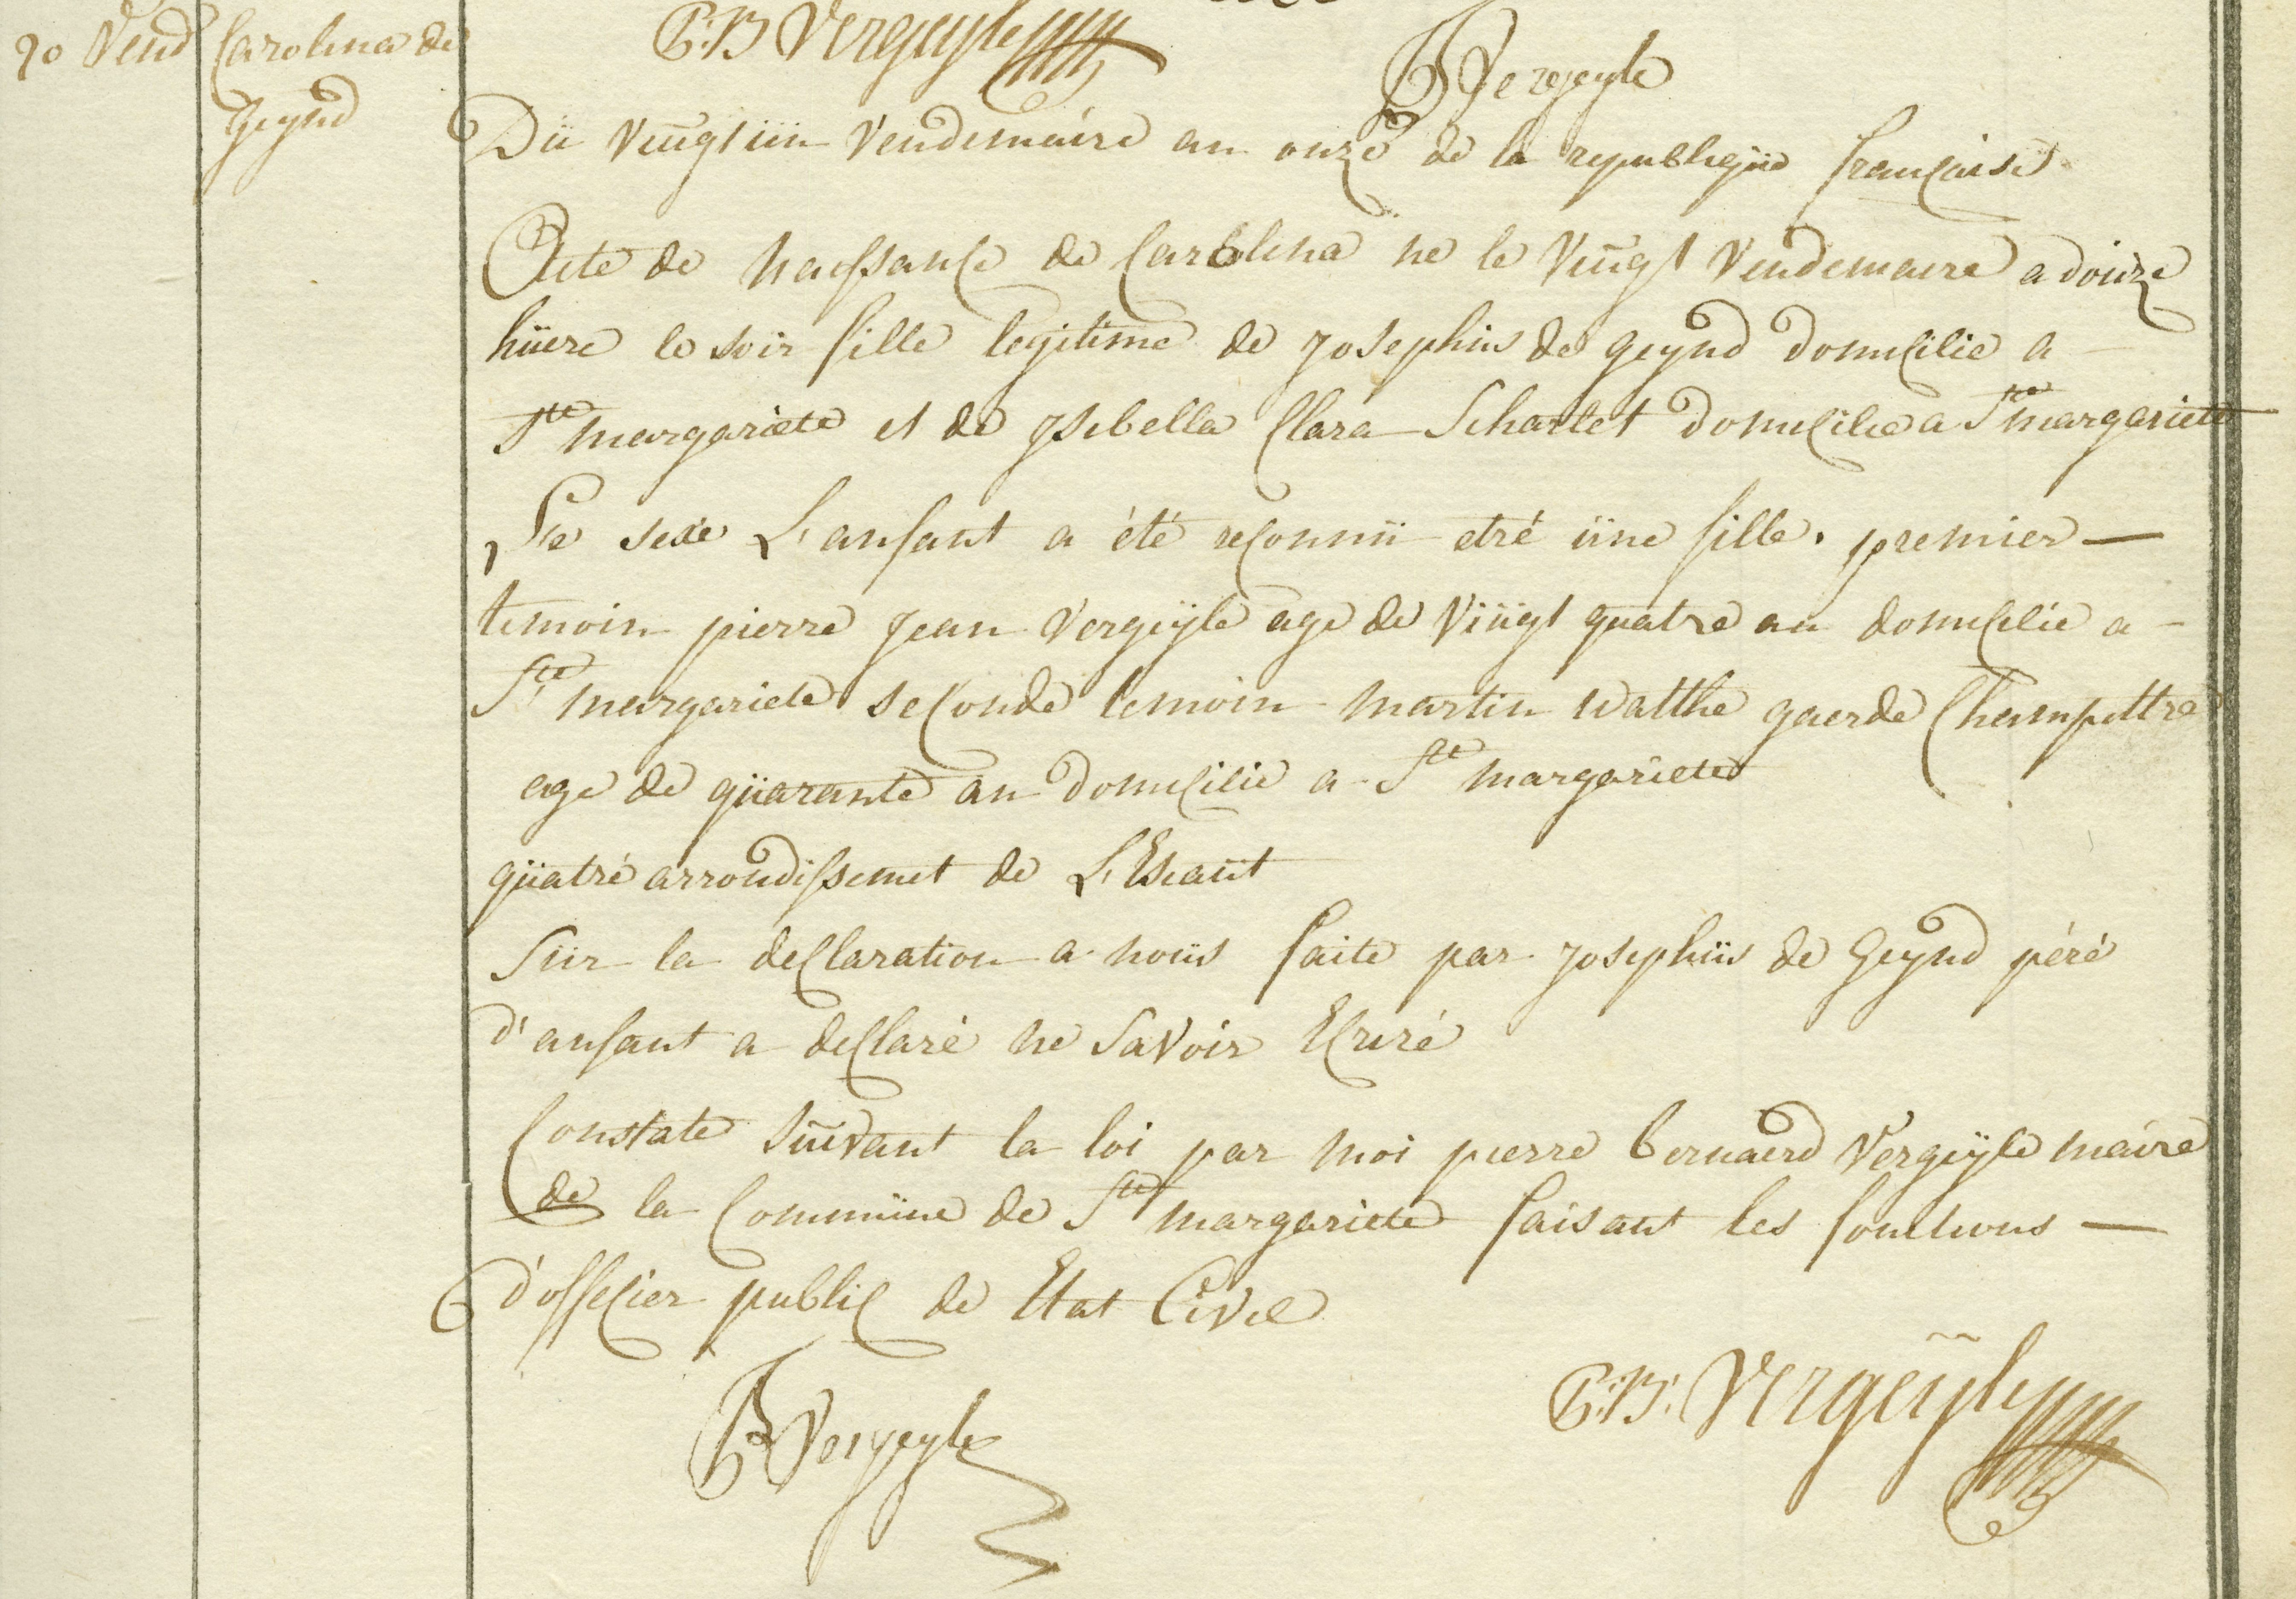 20 Vend Carolina de
Geynd
P:B Vergeyle
Vergeyle
Dü vëugt üñ Vendemaire an onze de la republeqüe française
Acte de naissance de Carolina ne le vëugt Vendemaire a douze
hüere le soir fille legitime de Josephus de geynd domicilie a
Ste margariete et de ysebella Clara Schatlet domicilie a Ste margariete
Le sexe L'anfant a été reconnü etré üne fille. premier —
temoin pierre Jean Vergeÿle age de vüügt quatre an domicilie a -
Ste margariete seconde temoin martin watthe gaerde Champettre
age de qüarante an domicilie a Ste margariete
qüatré arrondissemet de L'Escaüt
Sür la declaration a noüs faite par Josephüs de Geynd péré
d'anfant a declaré ne Savoir Ecriré
Constate süivant la loi par moi pierre bernaerd Vergeÿle maire
de la Commüne de Ste margariete faisant les fonctions —
d'offecier public de Etat Civel
Vergeyle
P:B: Vergeÿle